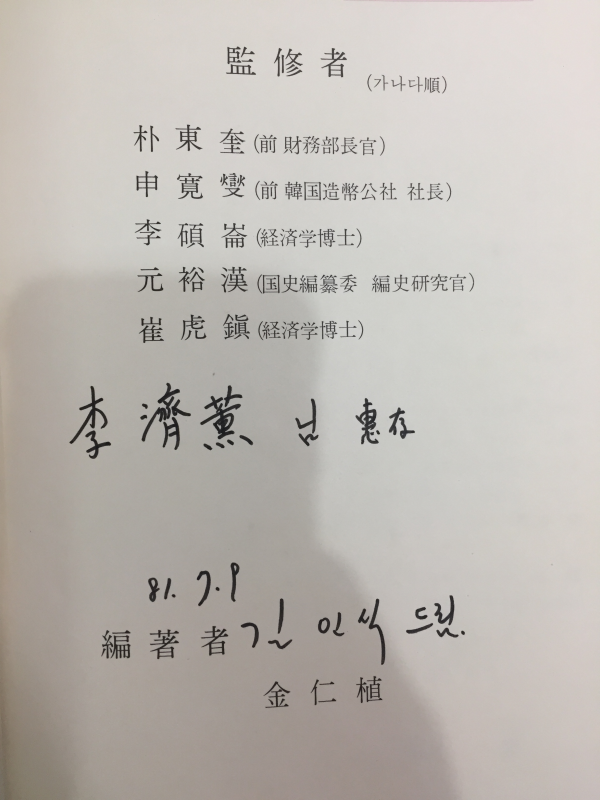 監修者
(가나다順)
朴東奎(前 財務部長官)
申寛燮(前 韓国造幣公社 社長)
李碩崙(経済学博士)
元裕漢(国史編纂委 編史研究官)
崔虎鎭(経済学博士)
李濟薰 님 惠存
81. 7. 9
編著者 김인식 드림.
金仁植